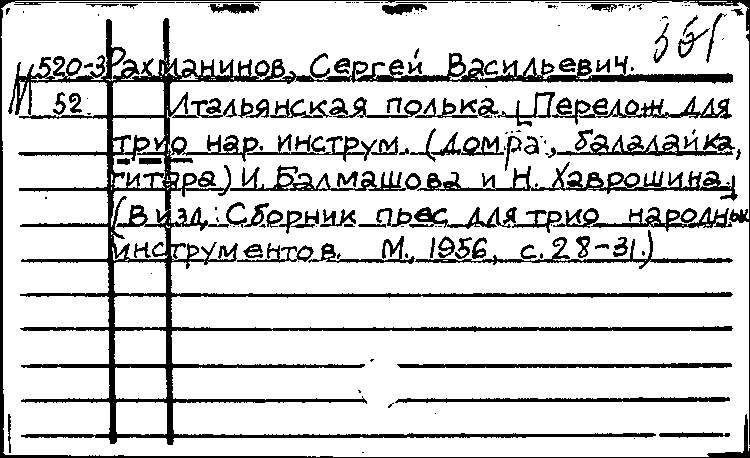 361
М 520-3 Рахманинов, Сергей Васильевич.
52 Итальянская полька. [Перелож. для
трио нар. инструм. (домра, балалайка,
гитара) И. Балмашова и Н. Хаврошина.]
(В изд.: Сборник пьес для трио народных
инструментов. М., 1956, с. 28-31.)